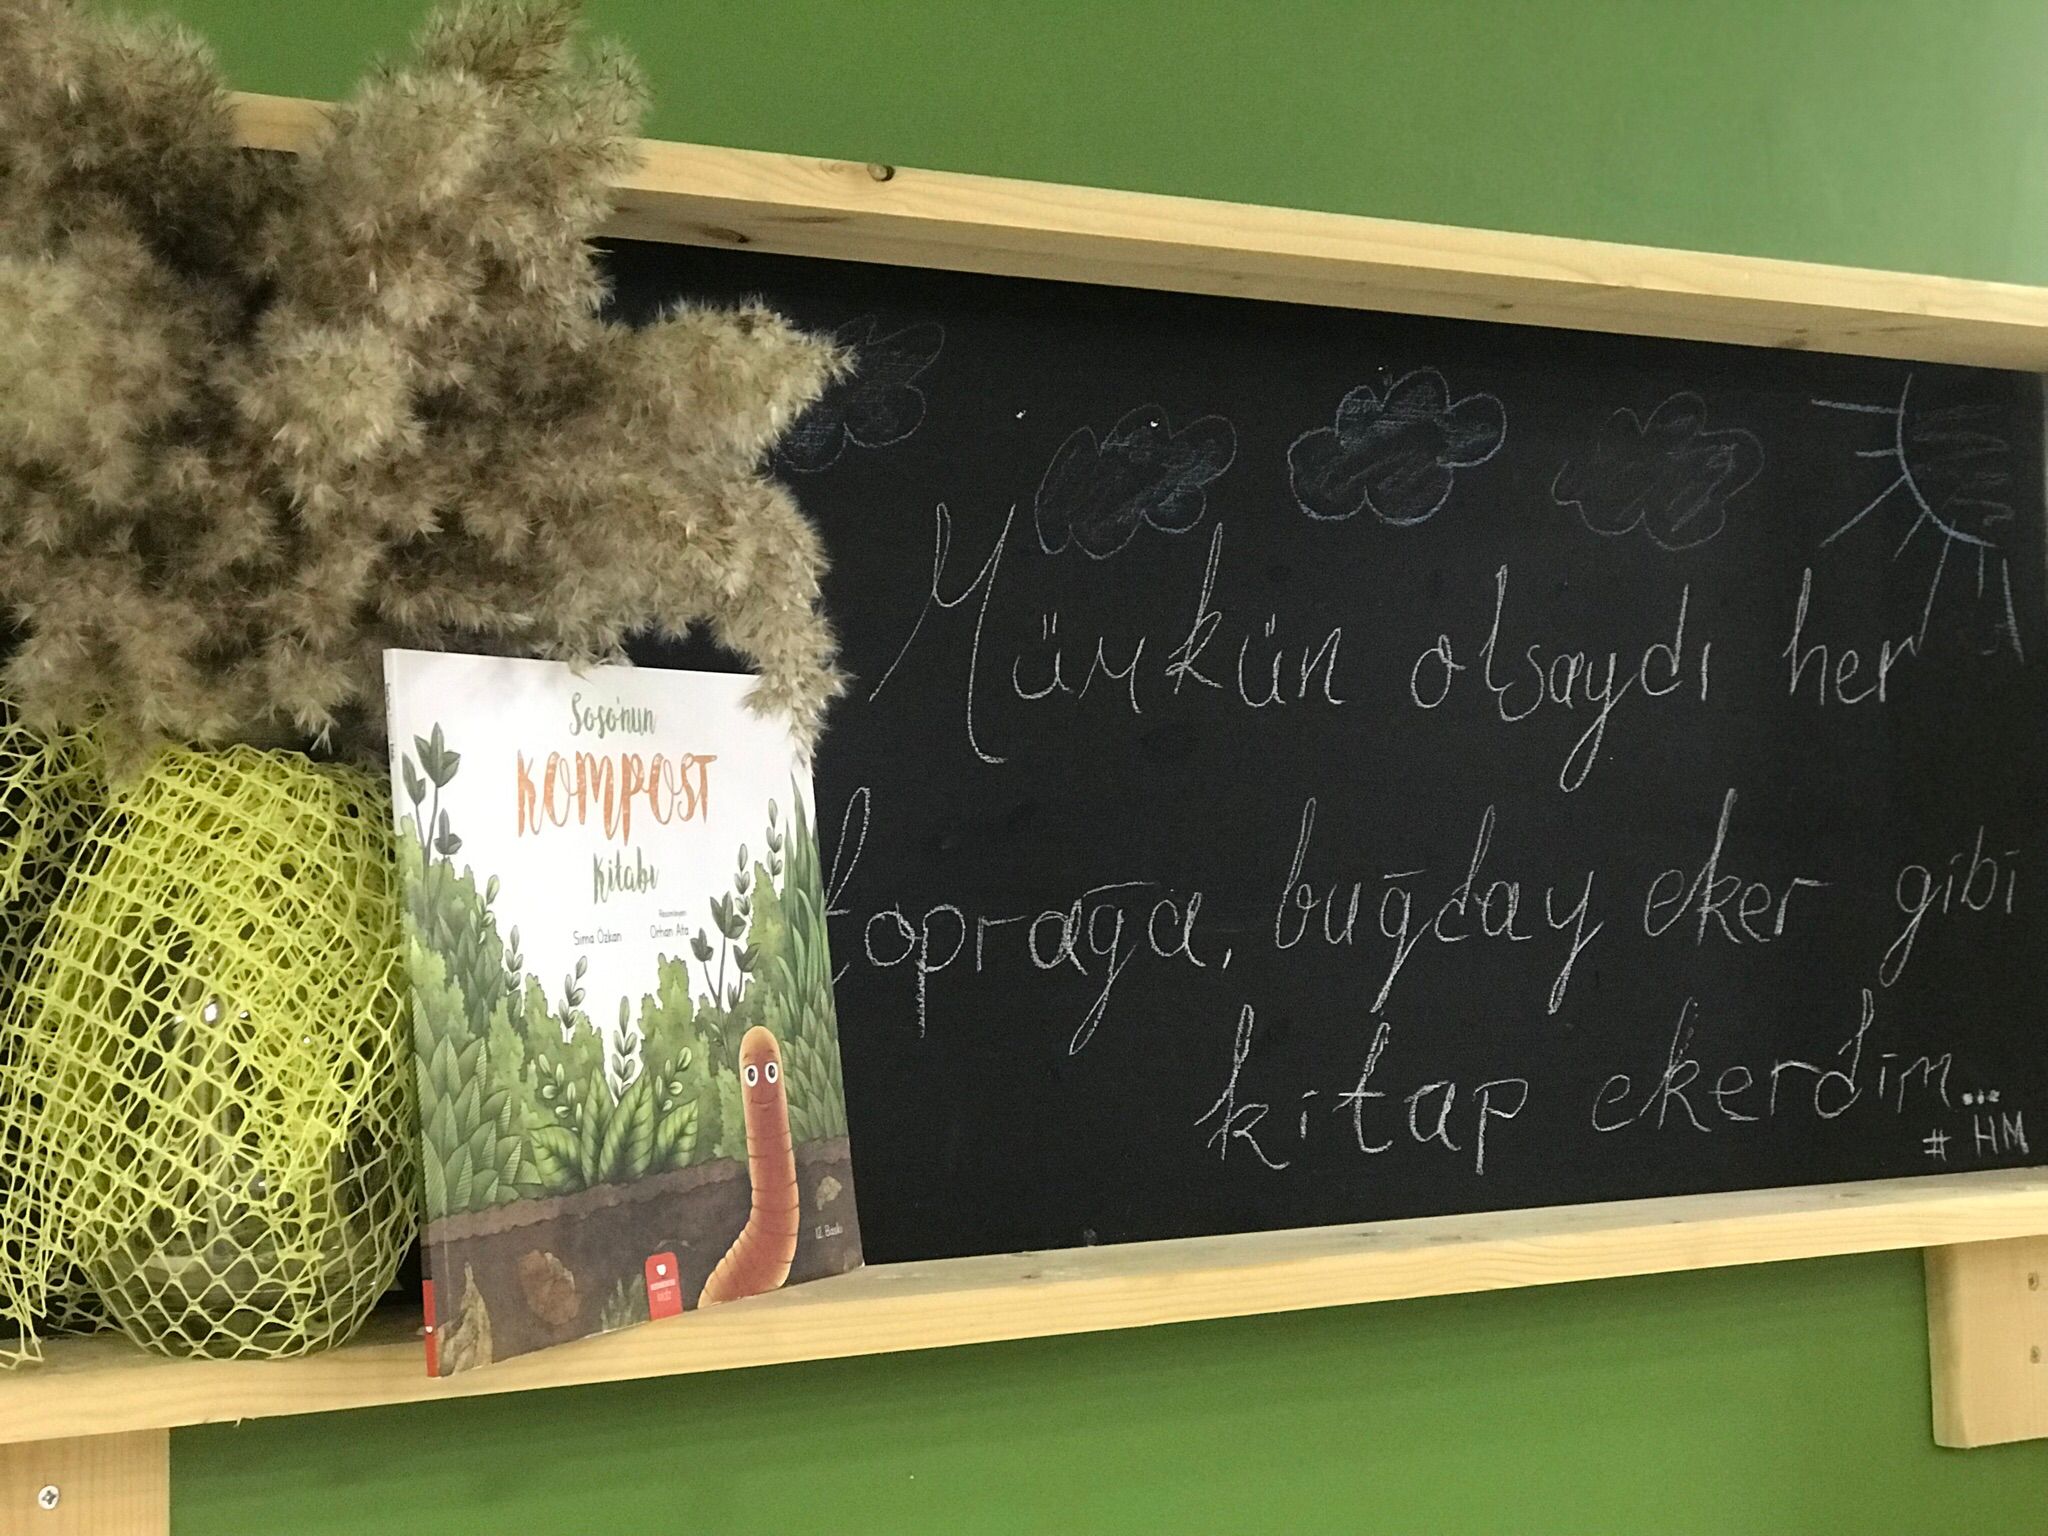 Soso'nun
KOMPOST
kitabı
Resimleyen
Sima Özkan Orhan Ata
12. Baskı
kidz
Mümkün olsaydı her
toprağa, buğday eker gibi
kitap ekerdim...
# HM